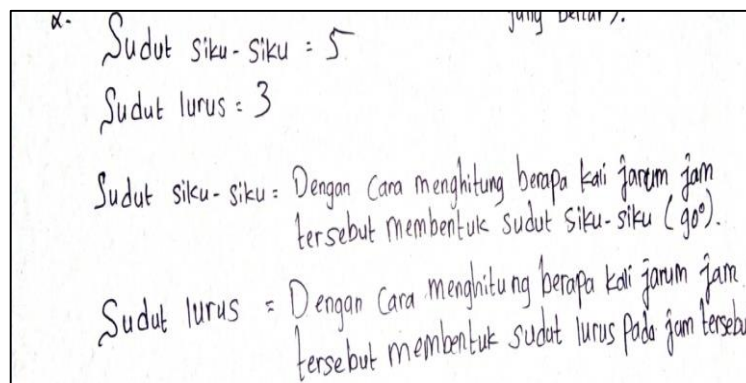 2.
Sudut siku-siku = 5
Sudut lurus = 3
Sudut siku-siku = Dengan cara menghitung berapa kali jarum jam
tersebut membentuk sudut siku-siku (90°).
Sudut lurus = Dengan cara menghitung berapa kali jarum jam
tersebut membentuk sudut lurus pada jam tersebu